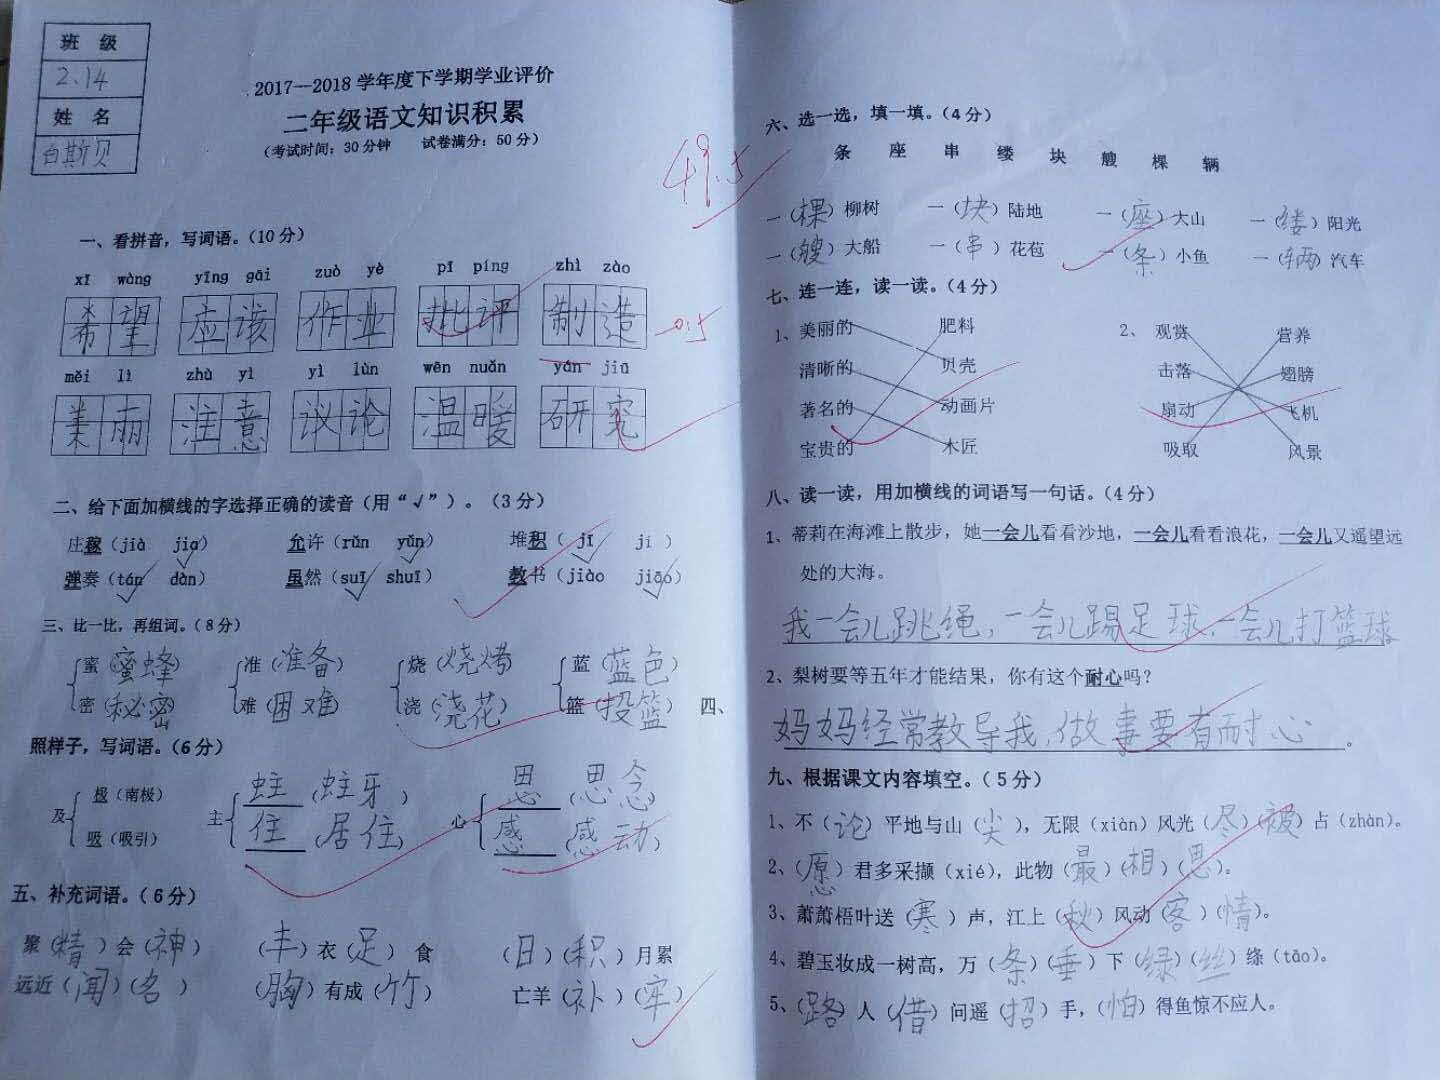 班 级
2、14
姓 名
白斯贝
2017--2018 学年度下学期学业评价
二年级语文知识积累
(考试时间：30分钟 试卷满分：50分)
49.5
一、看拼音，写词语。(10分)
xī wàng yīng gāi zuò yè pī píng zhì zào
希望 应该 作业 批评 制造
-0.5
měi lì zhù yì yì lùn wēn nuǎn yán jiū
美丽 注意 议论 温暖 研究
二、给下面加横线的字选择正确的读音（用“√”）。（3分）
庄稼（jià jia） 允许（rǔn yǔn） 堆积（ jī jí ）
弹奏（tán dàn） 虽然（suī shuī） 教书（jiào jiāo）
三、比一比，再组词。（8分）
蜜（蜜蜂） 准（准备） 烧（烧烤） 蓝（蓝色）
密（秘密） 难（困难） 浇（浇花） 篮（投篮） 四、
照样子，写词语。（6分）
及 极（南极） 吸（吸引） 主 蛀（蛀牙） 住（居住） 心 思（思念） 感（感动）
五、补充词语。（6分）
聚（精）会（神） （丰）衣（足）食 （日）（积）月累
远近（闻）（名） （胸）有成（竹） 亡羊（补）（牢）
六、选一选，填一填。（4分）
条 座 串 缕 块 艘 棵 辆
一（棵）柳树 一（块）陆地 一（座）大山 一（缕）阳光
一（艘）大船 一（串）花苞 一（条）小鱼 一（辆）汽车
七、连一连，读一读。（4分）
1、美丽的 肥料 2、观赏 营养
清晰的 贝壳 击落 翅膀
著名的 动画片 扇动 飞机
宝贵的 木匠 吸取 风景
八、读一读，用加横线的词语写一句话。（4分）
1、蒂莉在海滩上散步，她一会儿看看沙地，一会儿看看浪花，一会儿又遥望远
处的大海。
我一会儿跳绳，一会儿踢足球，一会儿打篮球
2、梨树要等五年才能结果，你有这个耐心吗？
妈妈经常教导我，做事要有耐心。
九、根据课文内容填空。（5分）
1、不（论）平地与山（尖），无限（xiàn）风光（尽）（被）占（zhàn）。
2、（愿）君多采撷（xié），此物（最）（相）（思）。
3、萧萧梧叶送（寒）声，江上（秋）风动（客）（情）。
4、碧玉妆成一树高，万（条）（垂）下（绿）（丝）绦（tāo）。
5、（路）人（借）问遥（招）手，（怕）得鱼惊不应人。